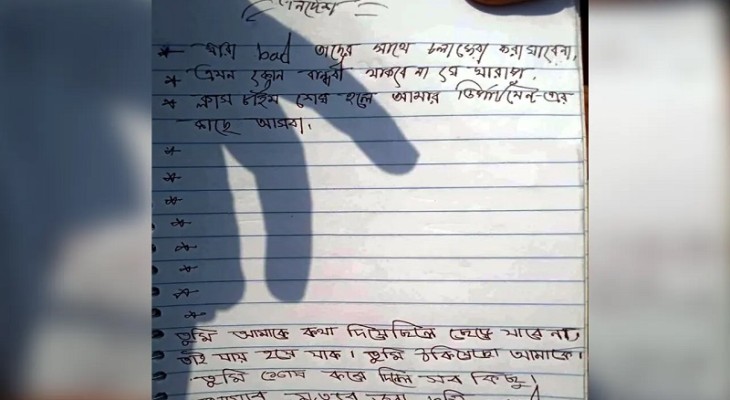 নির্দেশ
* যারা bad তাদের সাথে চলাফেরা করা যাবেনা,
* এমন কোন বান্ধবী থাকবে না যে খারাপ,
* ক্লাস টাইম শেষ হলে আমার ডিপার্টমেন্ট-এর
কাছে আসবা,
*
*
*
*
*
*
*
*
তুমি আমাকে কথা দিয়েছিলে ছেড়ে যাবে না,
তাই যায় হয়ে যাক। তুমি ঠকিয়েছো আমাকে।
তুমি শেষ করে দিলে সব কিছু।